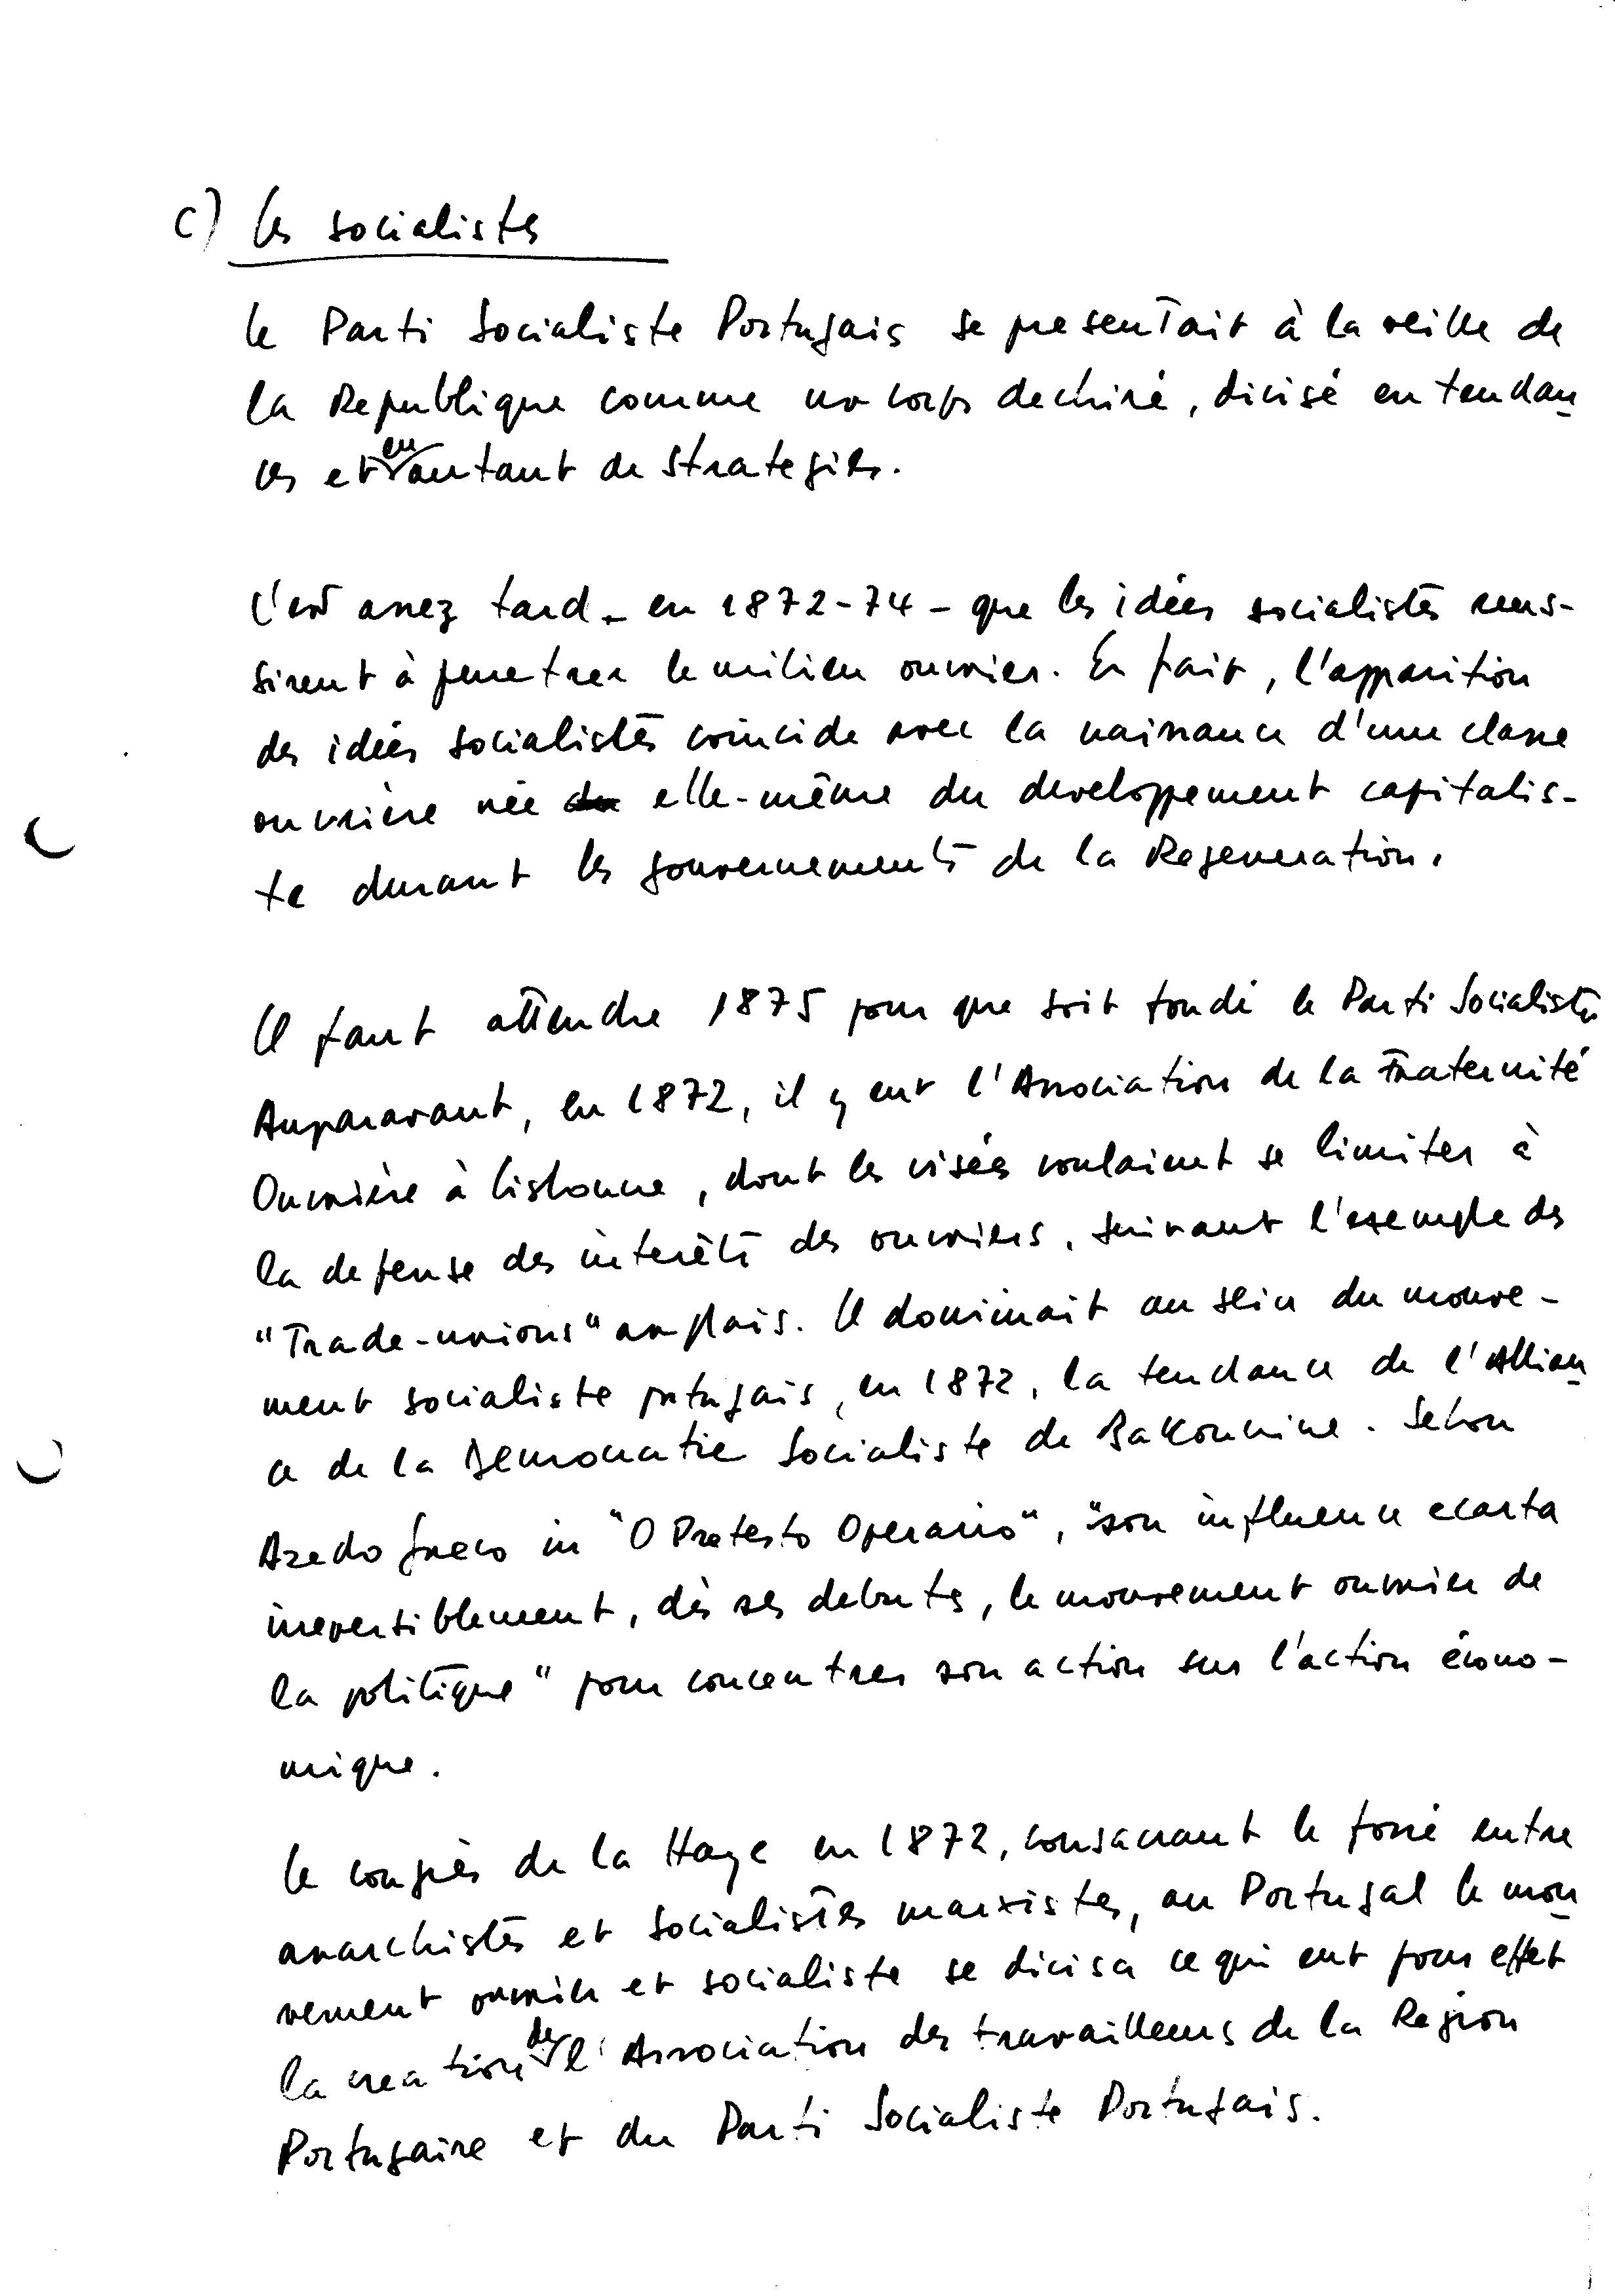 c) Les socialistes
Le Parti Socialiste Portugais se presentait à la veille de
la Republique comme un corps dechiré, divisé en tendan
ces et en autant de strategies.
C'est assez tard - en 1872-74 - que les idées socialistes reus-
sirent à penetrer le milieu ouvrier. En fait, l'apparition
des idées socialistes coincide avec la naissance d'une classe
ouvrière née du elle-même du developpement capitalis-
te durant les gouvernements de la Regeneration.
Il faut attendre 1875 pour que soit fondé le Parti Socialiste
Auparavant, en 1872, il y eut l'Association de la Fraternité
Ouvrière à Lisbonne, dont les visées voulaient se limiter à
la defense des interêts des ouvriers, suivant l'exemple des
"Trade-unions" anglais. Il dominait au sein du mouve-
ment socialiste portugais, en 1872, la tendance de l'Allian
ce de la Democratie Socialiste de Bakounine. Selon
Azedo Gneco in "O Protesto Operario", "son influence ecarta
irreversiblement, dès ses debuts, le mouvement ouvrier de
la politique" pour concentrer son action sur l'action écono-
mique.
Le congrès de la Haye en 1872, consacrant le fossé entre
anarchistes et socialistes marxistes, au Portugal le mou
vement ouvrier et socialiste se divisa ce qui eut pour effet
la creation de l'Association des travailleurs de la Region
Portugaise et du Parti Socialiste Portugais.